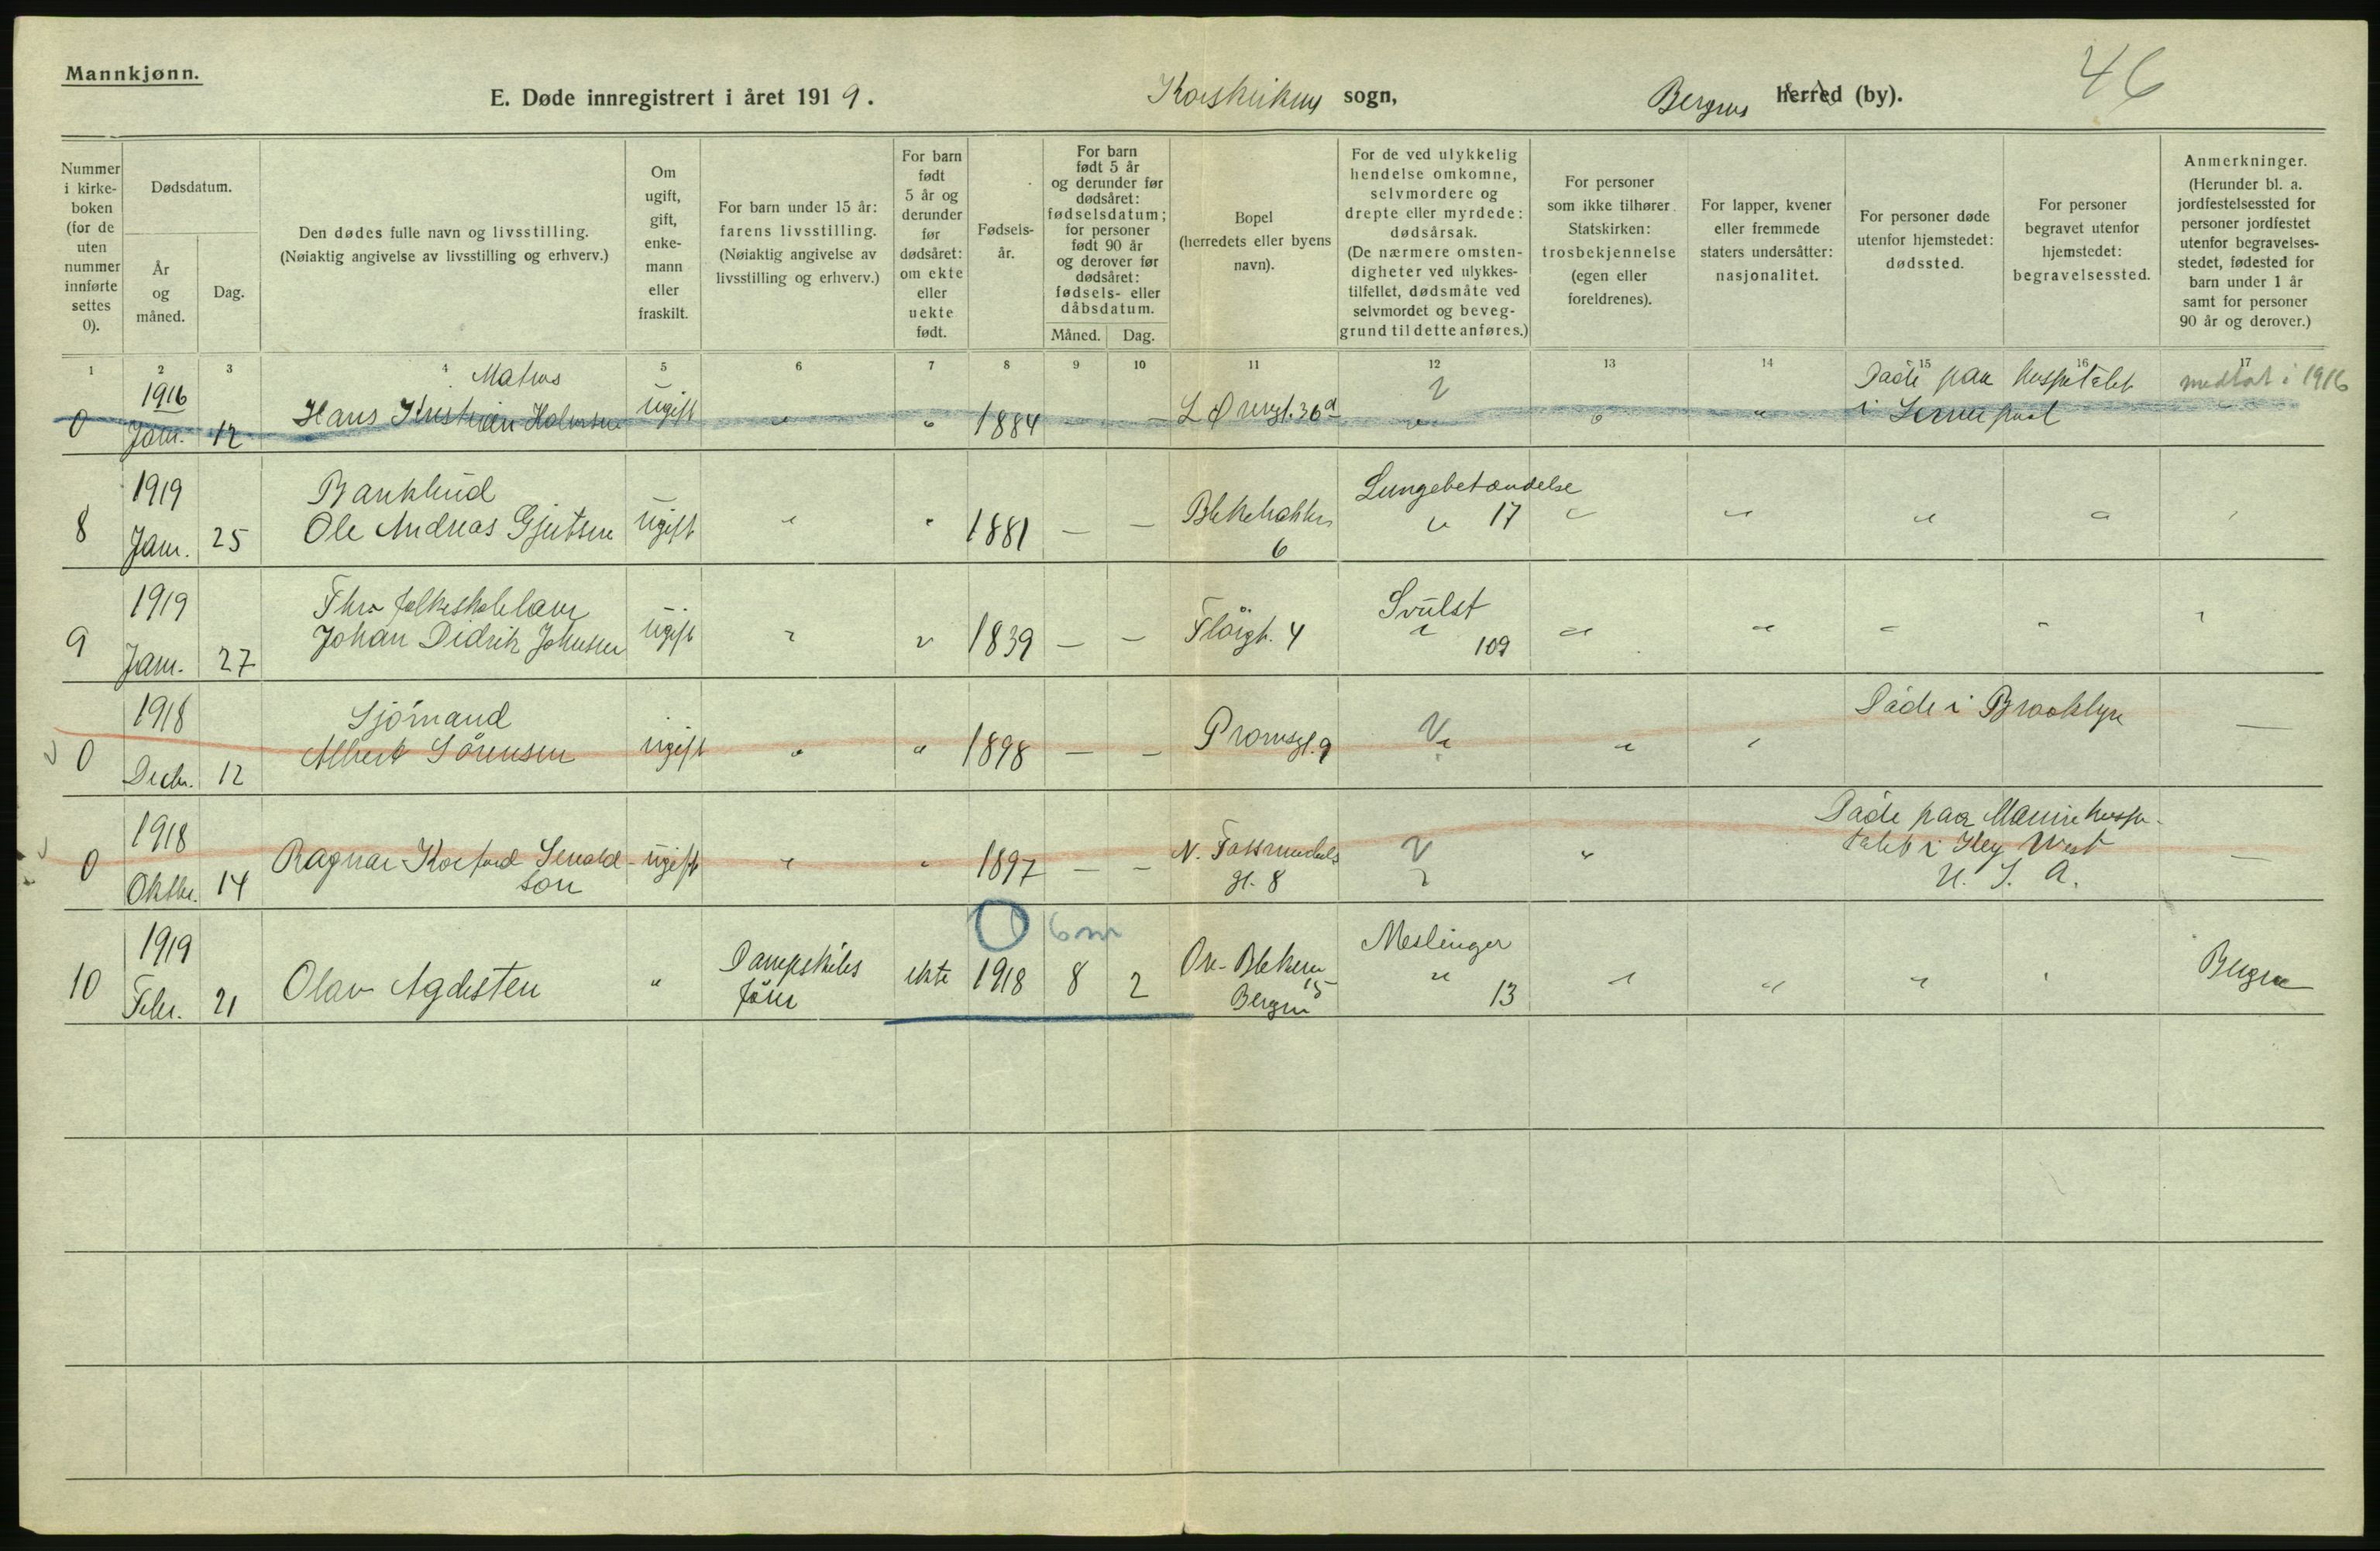 Mannkjønn.
46
E. Døde innregistrert i året 1919. Korskirkens sogn, Bergens herred (by).
Nummer i kirke- boken (for de uten nummer innførte settes 0).
Dødsdatum.
År og måned.
Dag.
Den dødes fulle navn og livsstilling.
(Nøiaktig angivelse av livsstilling og erhverv.)
Om ugift, gift, enke- mann eller fraskilt.
For barn under 15 år: farens livsstilling.
(Nøiaktig angivelse av livsstilling og erhverv.)
For barn født 5 år og derunder før dødsåret: om ekte eller uekte født.
Fødsels- år.
For barn født 5 år og derunder før dødsåret: fødselsdatum; for personer født 90 år og derover før dødsåret: fødsels- eller dåbsdatum.
Måned. Dag.
Bopel
(herredets eller byens navn).
For de ved ulykkelig hendelse omkomne, selvmordere og drepte eller myrdede: dødsårsak.
(De nærmere omsten- digheter ved ulykkes- tilfellet, dødsmåte ved selvmordet og beveg- grund til dette anføres.)
For personer som ikke tilhører Statskirken: trosbekjennelse (egen eller foreldrenes).
For lapper, kvener eller fremmede staters undersåtter: nasjonalitet.
For personer døde utenfor hjemstedet: dødssted.
For personer begravet utenfor hjemstedet: begravelsessted.
Anmerkninger.
(Herunder bl. a. jordfestelsessted for personer jordfestet utenfor begravelses- stedet, fødested for barn under 1 år samt for personer 90 år og derover.)
1 2 3 4 5 6 7 8 9 10 11 12 13 14 15 16 17
1916 Matros Døde paa hospitalet medtat i 1916
0 Jan. 12 Hans Kristian ugift " " 1884 — — 36a " " " i
1919 Lungebetændelse
8 Jan. 25 Ole Andreas Gjertsen ugift " " 1881 — — 6 " 17 " " " " "
1919 Svulst
9 Jan. 27 Johan Didrik Johnsen ugift " " 1839 — — 4 " 109 " " " " "
1918 Sjømand Døde i Brooklyn
0 Decbr. 12 Albert Sörensen ugift " " 1898 — — 9 " " " —
1918 Døde paa Marinehospi-
0 Oktbr. 14 Ragnar ugift " " 1897 — — N. " " talet i Key West —
son gt. 8 U. S. A.
0 6 m
1919 Dampskibs Meslinger
10 Febr. 21 Olav Agdesten " ekte 1918 8 2 15 " 13 " " " " Bergen
Bergen